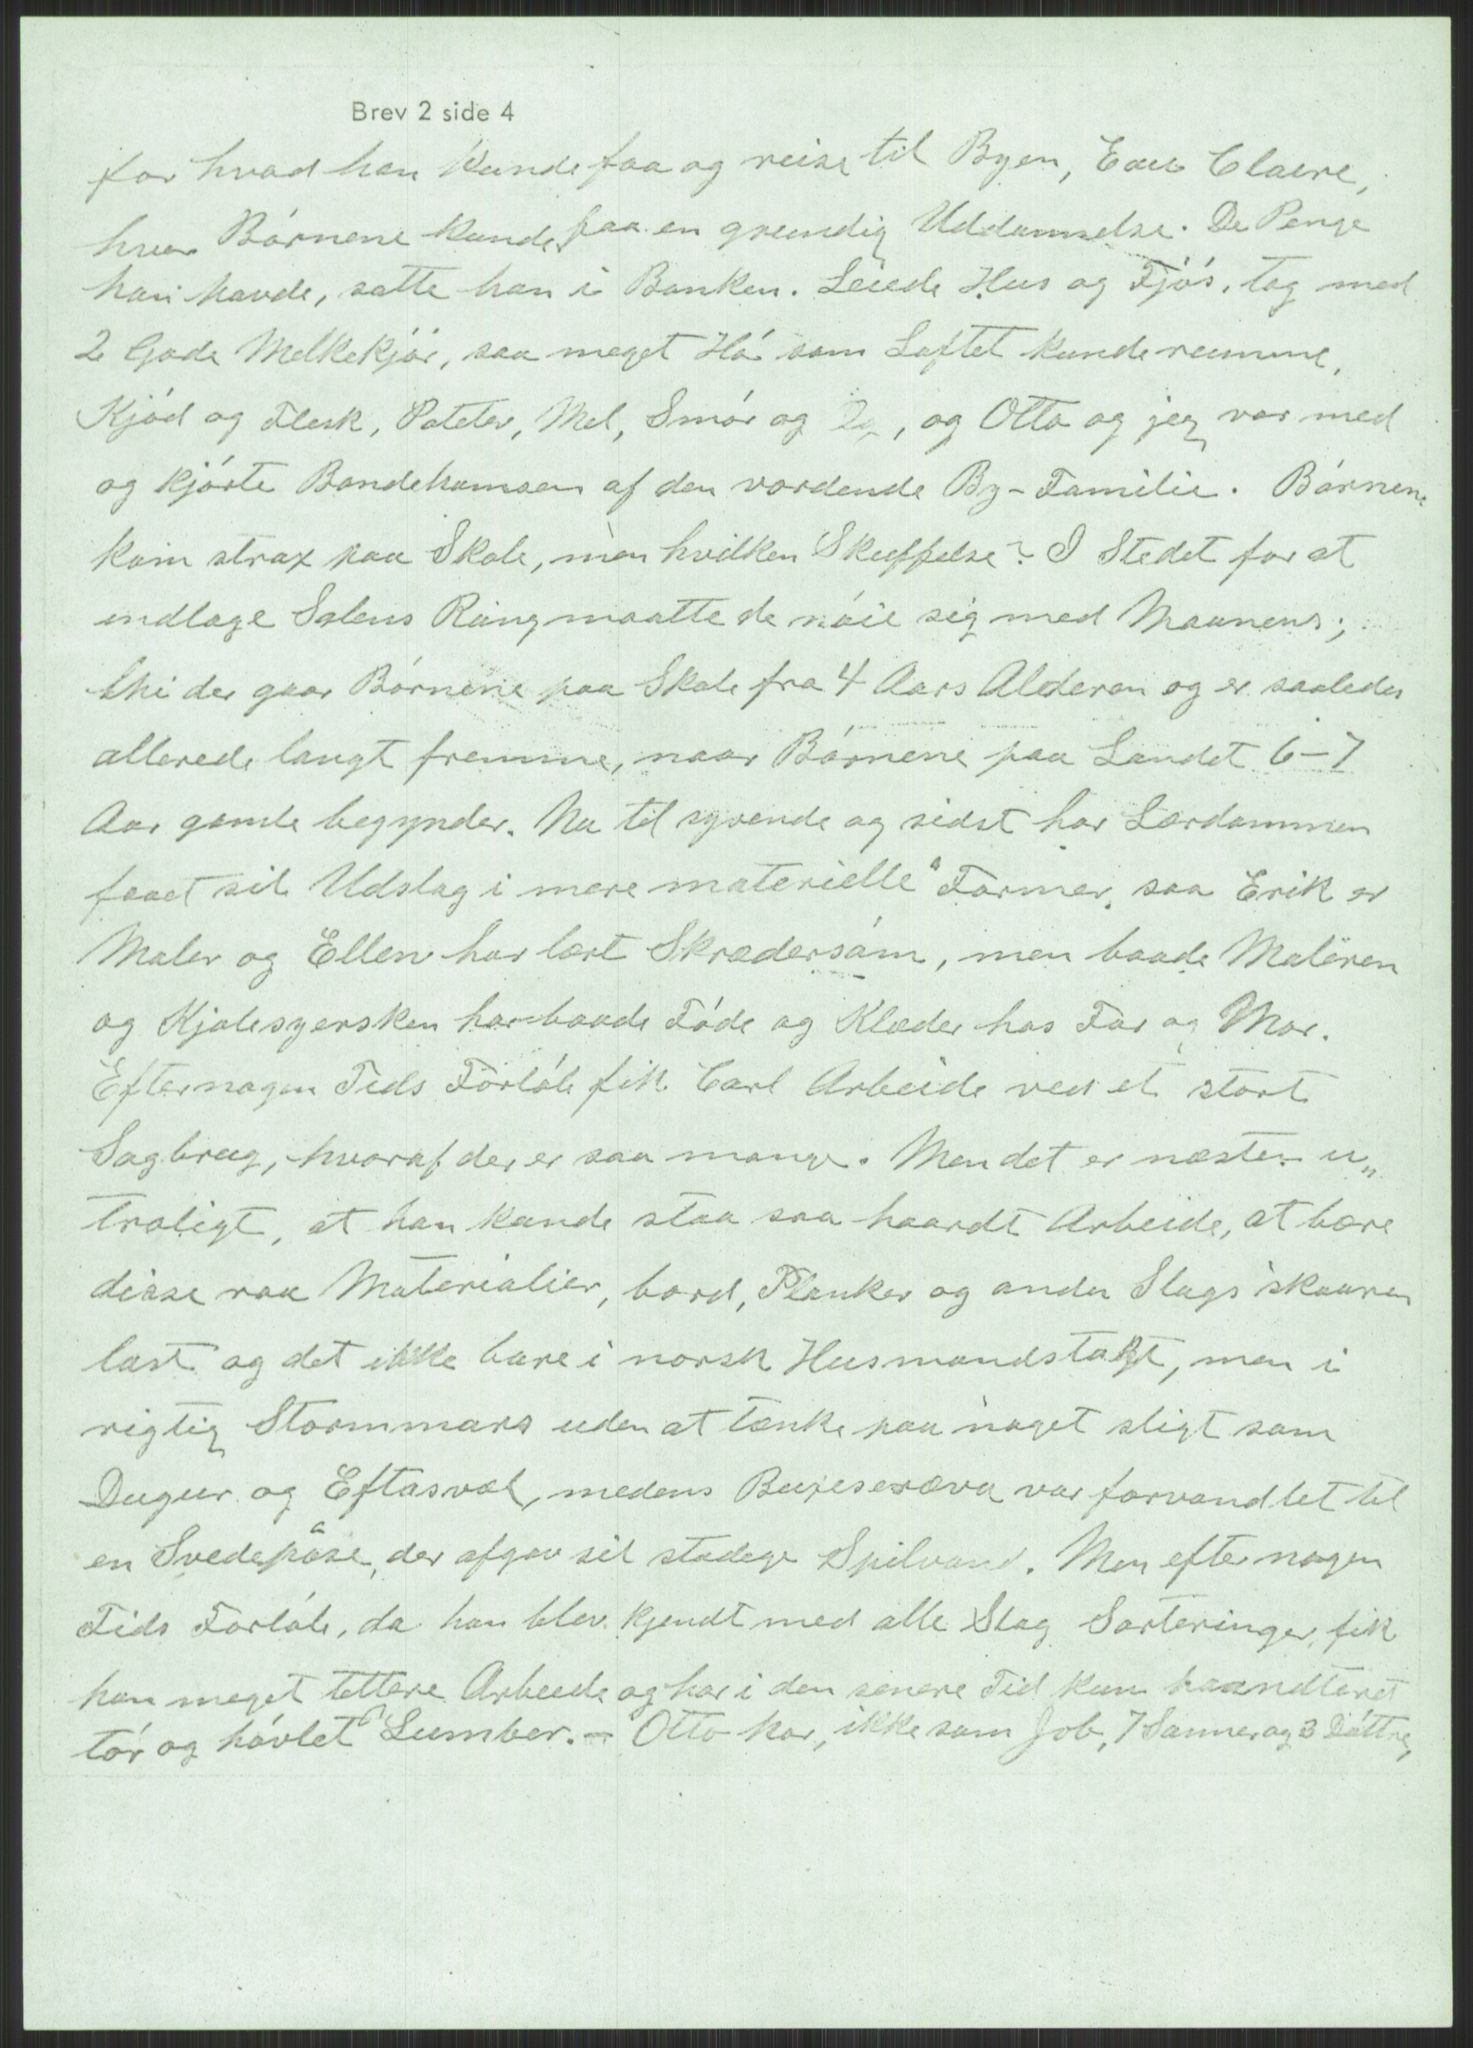 Brev 2 side 4
for hvad han kunde faa og reise til Byen, Eau Claere,
hvor Börnene kunde faa en grundig Uddannelse. De Penge
han havde, satte han i Banken. Leiede Hus og Fjös, tog med
2 Gode Melkekjör, saa meget Hö som Loftet kunde rumme,
Kjöd og Flesk, Poteter, Mel, Smör og Eg, og Otto og jeg var med
og kjörte Bondehamsen af den vordende By-Familie. Börnene
kom strax paa Skole, men hvilken Skuffelse? I Stedet for at
indtage Solens Rang maatte de nöie sig med Maanens;
thi der gaar Börnene paa Skole fra 4 Aars Alderen og er saaledes
allerede langt fremme, naar Börnene paa Landet 6-7
Aar gamle begynder. Nu til syvende og sidst har Lærdommen
faaet sit Udslag i mere materielle Former, saa Erik er
Maler og Ellen har lært Skrædersöm, men baade Maleren
og Kjolesyersken har baade Föde og Klæder hos Far og Mor.
Efter nogen Tids Forlöb fik Carl Arbeide ved et stort
Sagbrug, hvoraf der er saa mange. Men det er næsten u„
troligt, at han kunde staa saa haardt Arbeide, at bære
disse raa Materialier, bord, Planker og andu Slags skaaren
last og det ikke bare i norsk Husmandstakt, men i
rigtig Stormmars uden at tænke paa noget sligt som
Dugur og Eftasvæl, medens Buxeseræva var forvandlet til
en Svedepåse, der afgav sit stadege Spilvand. Men efter nogen
Tids Forlöb, da han blev kjendt med alle Slag Sorteringer, fik
han meget lettere Arbeide og har i den senere Tid kun haandteret
tör og hövlet Lumber. - Otto har, ikke som Job, 7 Sönner og 3 Döttre,